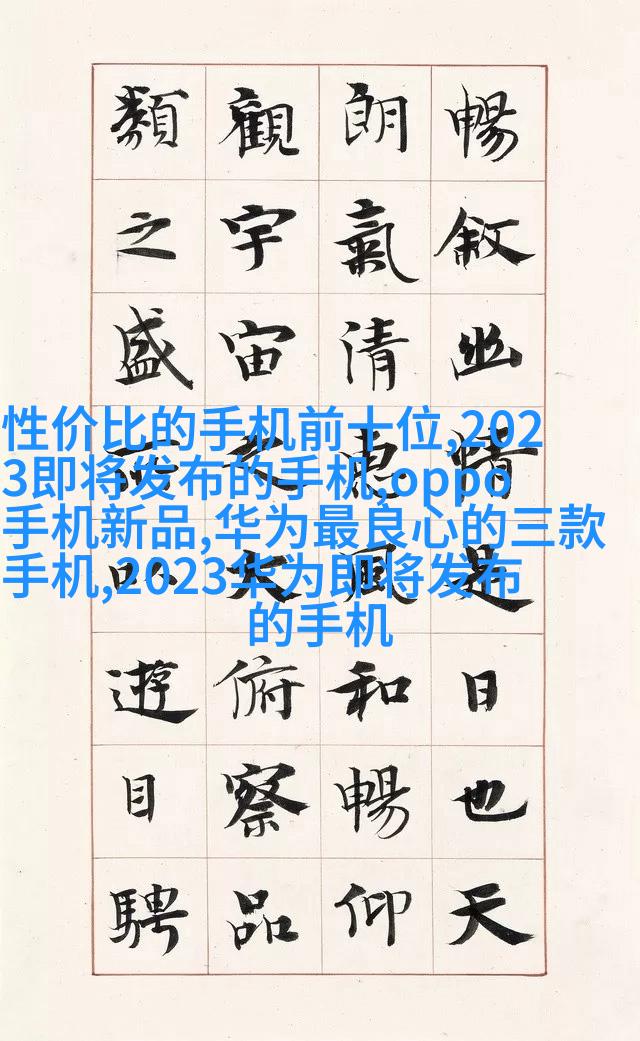 暢敘幽情是日也天
朗氣清惠風和暢仰
觀宇宙之大俯察品
類之盛所以遊目騁
性价比的手机前十位,202
3即将发布的手机,oppo
手机新品,华为最良心的三款
手机,2023华为即将发布
的手机